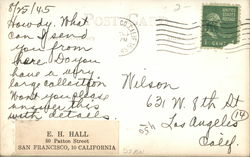 8/25/45
Howdy. What
can I send
you from
here. Do you
have a very
large collection
Wont you please
answer this
with details
E. H. HALL
80 Patton Street
SAN FRANCISCO, 10 CALIFORNIA
POST CARD
CALIF.
Wilson
631 W. 8th St
Los Angeles
14
Calif.